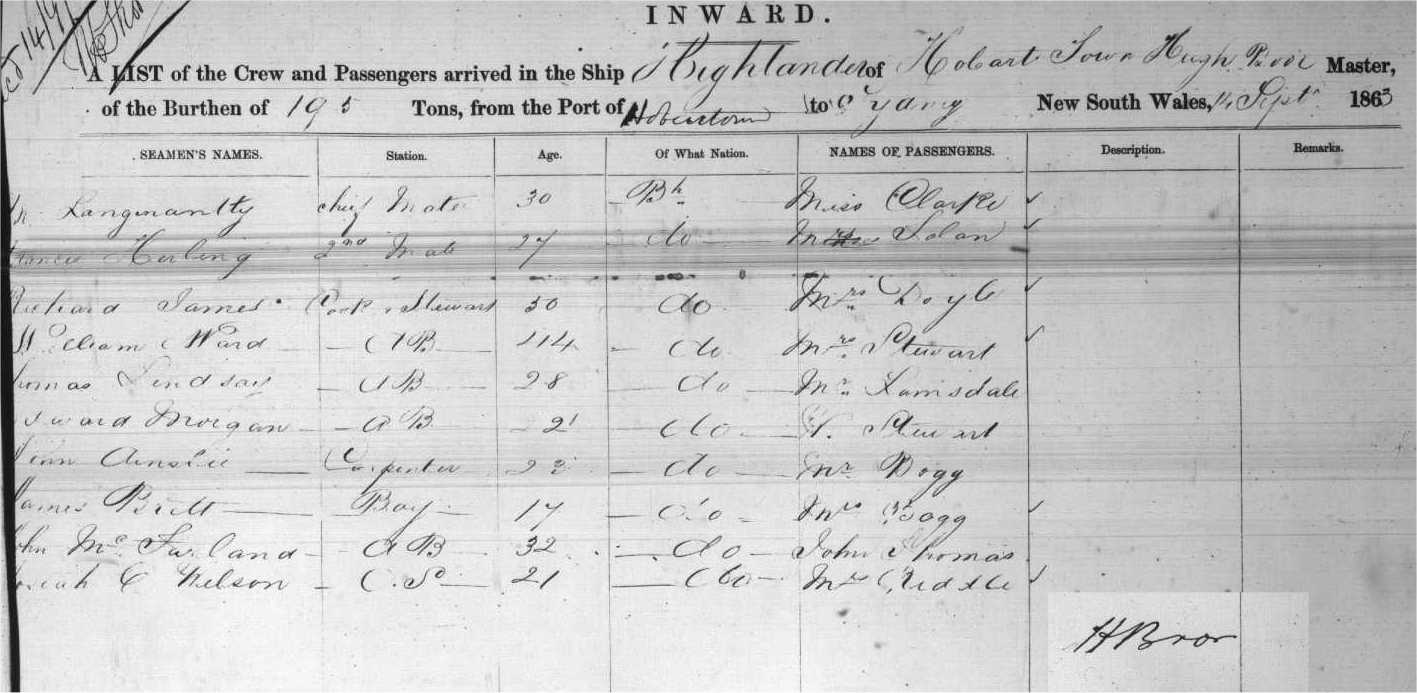 INWARD.
A LIST of the Crew and Passengers arrived in the Ship Highlander of Hobart Town Hugh Master,
of the Burthen of 195 Tons, from the Port of Hobartown to Sydney New South Wales, 14 Sept 1863
SEAMEN'S NAMES. Station. Age. Of What Nation. NAMES OF PASSENGERS. Description. Remarks.
chief Mate 30 Bh Miss Clarke ✓
2nd Mate 27 do ✓
Richard James Cook & Steward 50 do Mrs Doyle ✓
William Ward AB 44 do Mrs Stewart ✓
Thomas Lindsay AB 28 do Mr
Edward Morgan AB 21 do Stewart
Ainslie Carpenter do Mr Bogg
James Brett Boy 17 do Mrs Bogg ✓
John McFarland AB 32 do John Thomas
C Nelson O.S. 21 do Mrs ✓
H Bror